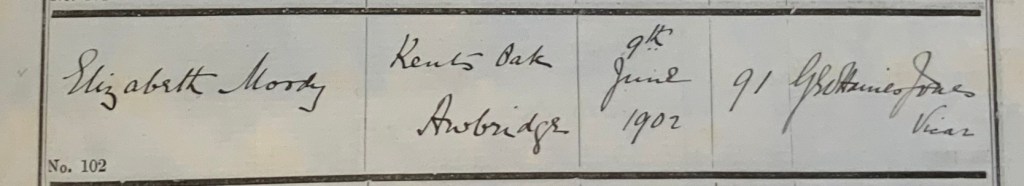 Elizabeth Moody
Kents Oak
Awbridge
9th
June
1902
91
Haines Jones
Vicar
No. 102